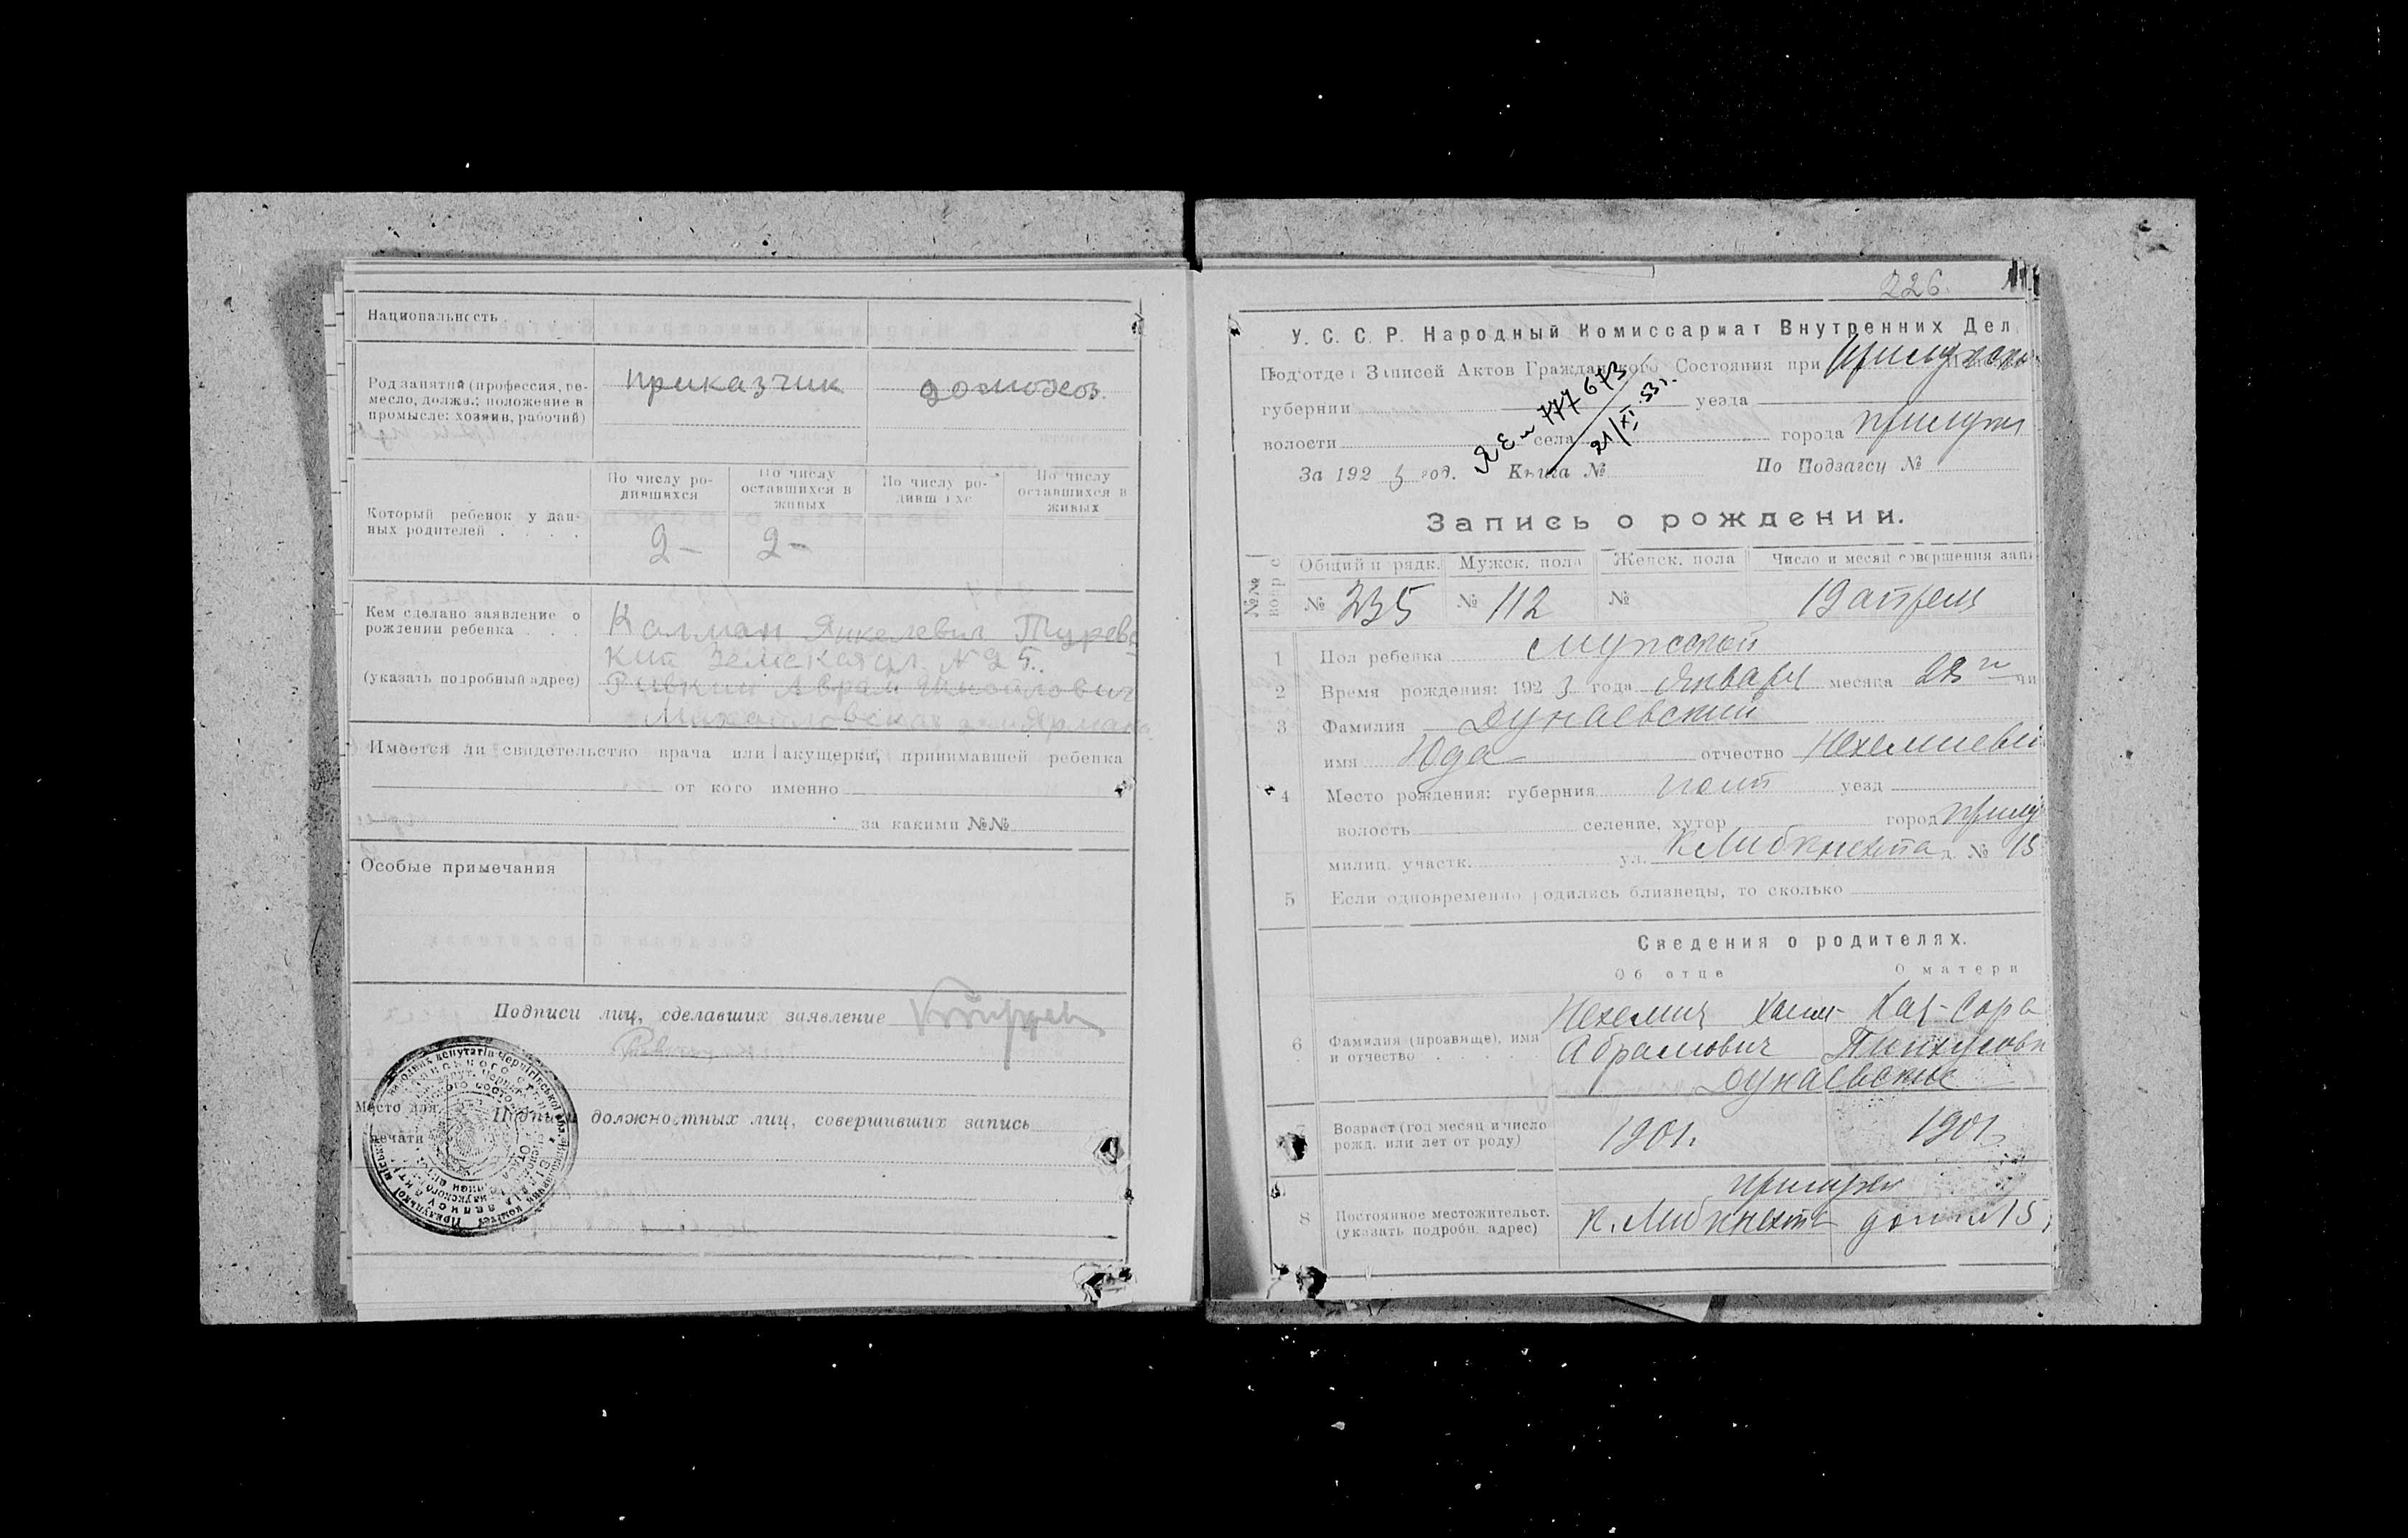 Национальность
Род занятий (профессия, ре-
месло, должн.; положение в
промысле: хозяин, рабочий)
приказчик
домохоз.
Который ребенок у дан-
ных родителей . . . .
По числу ро-
дившихся
По числу
оставшихся в
живых
По числу ро-
дивш хс
По числу
оставшихся в
живых
2 –
2 –
Кем сделано заявление о
рождении ребенка . . .
(указать подробный адрес)
Калман Янкелевич Туревс
кий Земская ул. № 25.
Ривкин Аврам
Михайловская
Имеется ли свидетельство врача или акушерки, принимавшей ребенка
от кого именно
за какими №№
Особые примечания
Подписи лиц, сделавших заявление
Место для
печати
Подписи должностных лиц, совершивших запись
226.
У. С. С. Р. Народный Комиссариат Внутренних Дел
Подотдел Записей Актов Гражданского Состояния при
губернии уезда
волости села города Прилуки
777673
21/XI 53 г.
За 192 3 год. Книга № По Подзагсу №
Запись о рождении.
№№
Общий п рядк. Мужск. пола Женск. пола Число и месяц совершения запи
№ 235 № 112 № 19 апреля
1 Пол ребенка мужской
2 Время рождения: 192 3 года Января месяца 28 го чи
3 Фамилия Дунаевский
имя Юда отчество Нехемиеви
4 Место рождения: губерния Полт уезд
волость селение, хутор город Прилу
милиц. участк. ул. К Либкнехта д. № 15
5 Если одновременно родились близнецы, то сколько
Сведения о родителях.
Об отце О матери
6 Фамилия (прозвище), имя
и отчество . . . .
Нехемия Хаим- Хая-Сора
Абрамович Пинхусовн
Дунаевские
7 Возраст (год месяц и число
рожд. или лет от роду)
1901. 1901.
8 Постоянное местожительст.
(указать подробн. адрес)
Прилуки
К. Либкнехта дом № 15